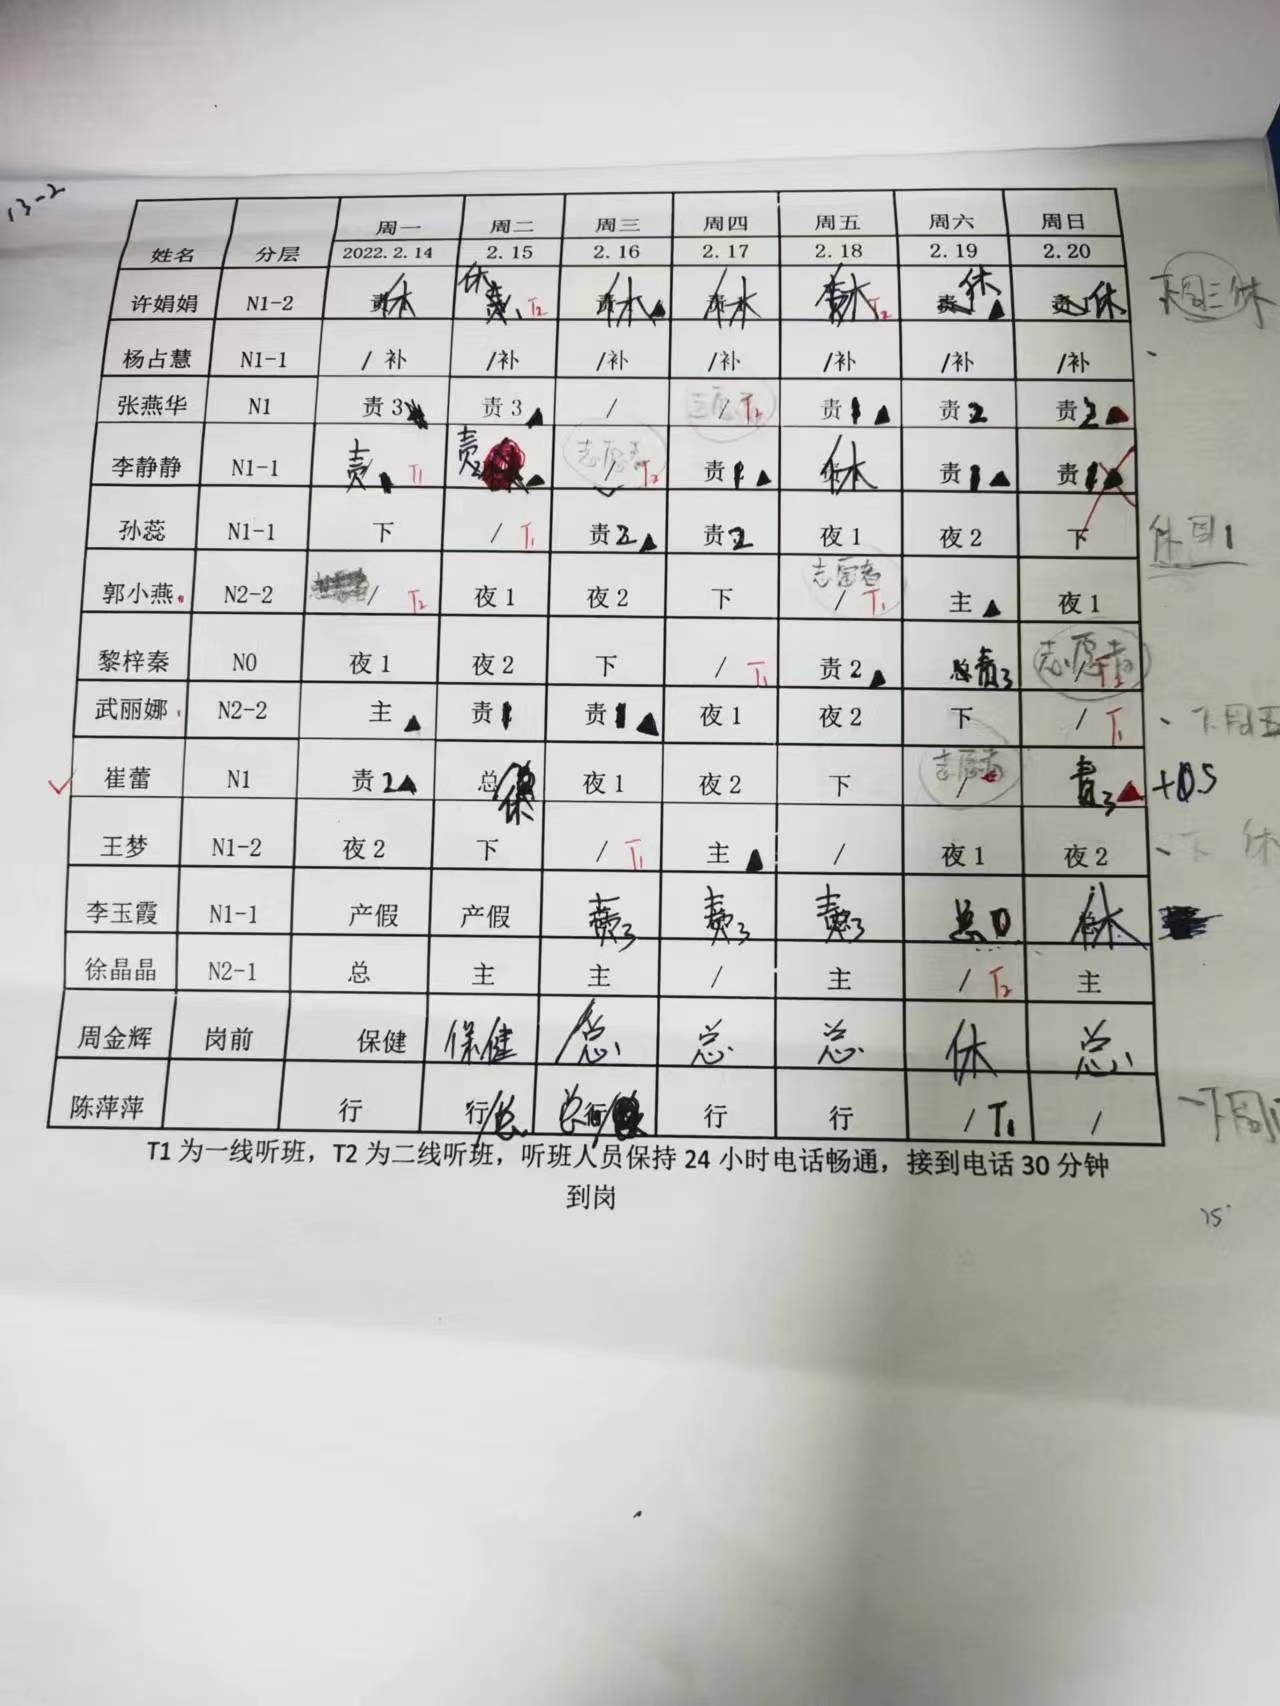 13-2
姓名 分层 周一 周二 周三 周四 周五 周六 周日
2022.2.14 2.15 2.16 2.17 2.18 2.19 2.20
许娟娟 N1-2 责休 休责 T2 责休▲ 责休 责休 T2 责休▲ 责休 下周三休
杨占慧 N1-1 /补 /补 /补 /补 /补 /补 /补
张燕华 N1 责3 责3▲ / / T2 责1▲ 责2 责2▲
李静静 N1-1 责1 T1 责2▲ 志愿者 / T2 责1▲ 休 责1▲ 责1▲
孙蕊 N1-1 下 / T1 责2▲ 责2 夜1 夜2 下 休周1
郭小燕 N2-2 / T2 夜1 夜2 下 志愿者 / T1 主▲ 夜1
黎梓秦 N0 夜1 夜2 下 / T1 责2▲ 总责3 志愿者 / T2
武丽娜 N2-2 主▲ 责1 责1▲ 夜1 夜2 下 / T1 下周五
崔蕾 N1 责2▲ 总休 夜1 夜2 下 志愿者 / 责3▲ +0.5
王梦 N1-2 夜2 下 / T1 主▲ / 夜1 夜2 下 休
李玉霞 N1-1 产假 产假 责3 责3 责3 总 休
徐晶晶 N2-1 总 主 主 / 主 / T2 主
周金辉 岗前 保健 保健 总 总 总 休 总
陈萍萍 行 行/总 总行/ 行 行 / T1 / 下周
T1为一线听班，T2为二线听班，听班人员保持24小时电话畅通，接到电话30分钟
到岗